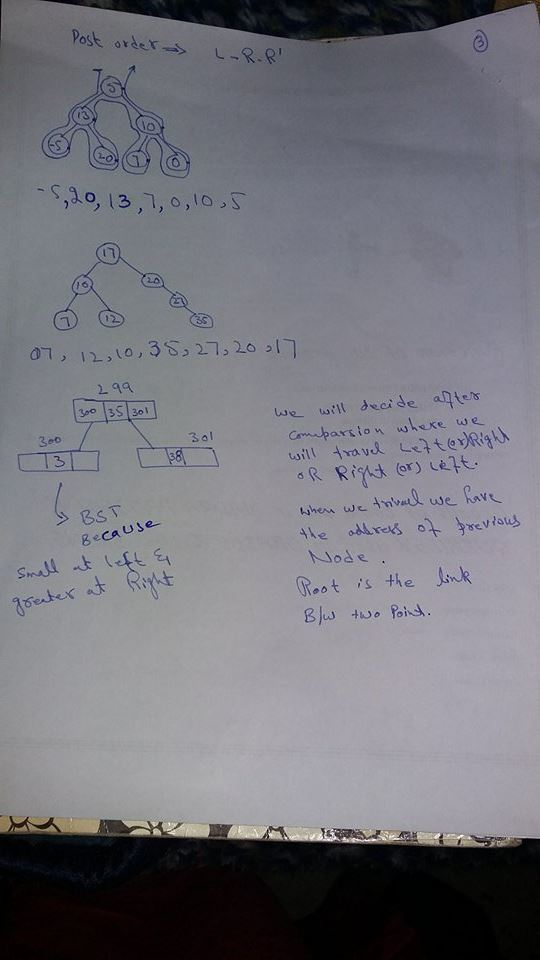 Post order ⇒ L-R-R'
3
5
13 10
-5 20 7 0
-5, 20, 13, 7, 0, 10, 5
17
10 20
27
7 12 35
07, 12, 10, 35, 27, 20, 17
299
300 35 301
300 301
13 38
BST
Because
Small at left &
greater at Right
we will decide after
comparsion where we
will travel Left (or) Right
oR Right (or) Left.
when we trival we have
the address of previous
Node.
Root is the link
B/w two Point.